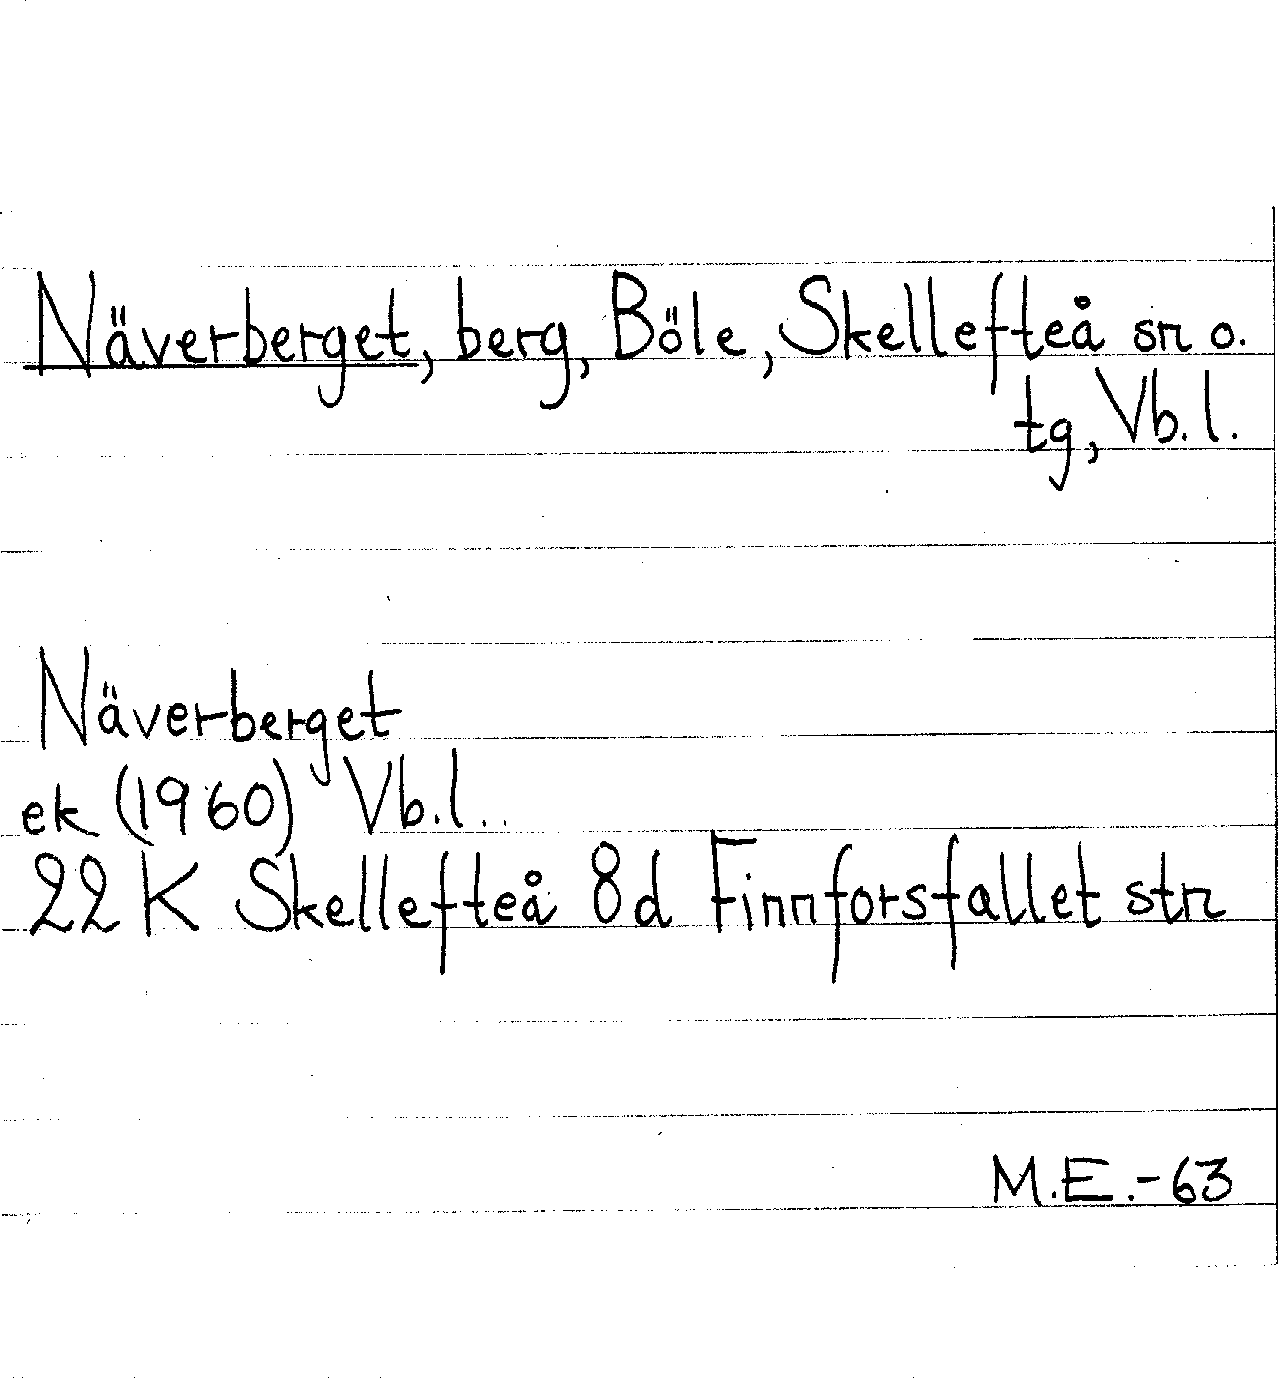 Näverberget, berg, Böle, Skellefteå sn o.
tg, Vb. l.
Näverberget
ek (1960) Vb.l..
22 K Skellefteå 8d Finnforsfallet str
M.E.-63